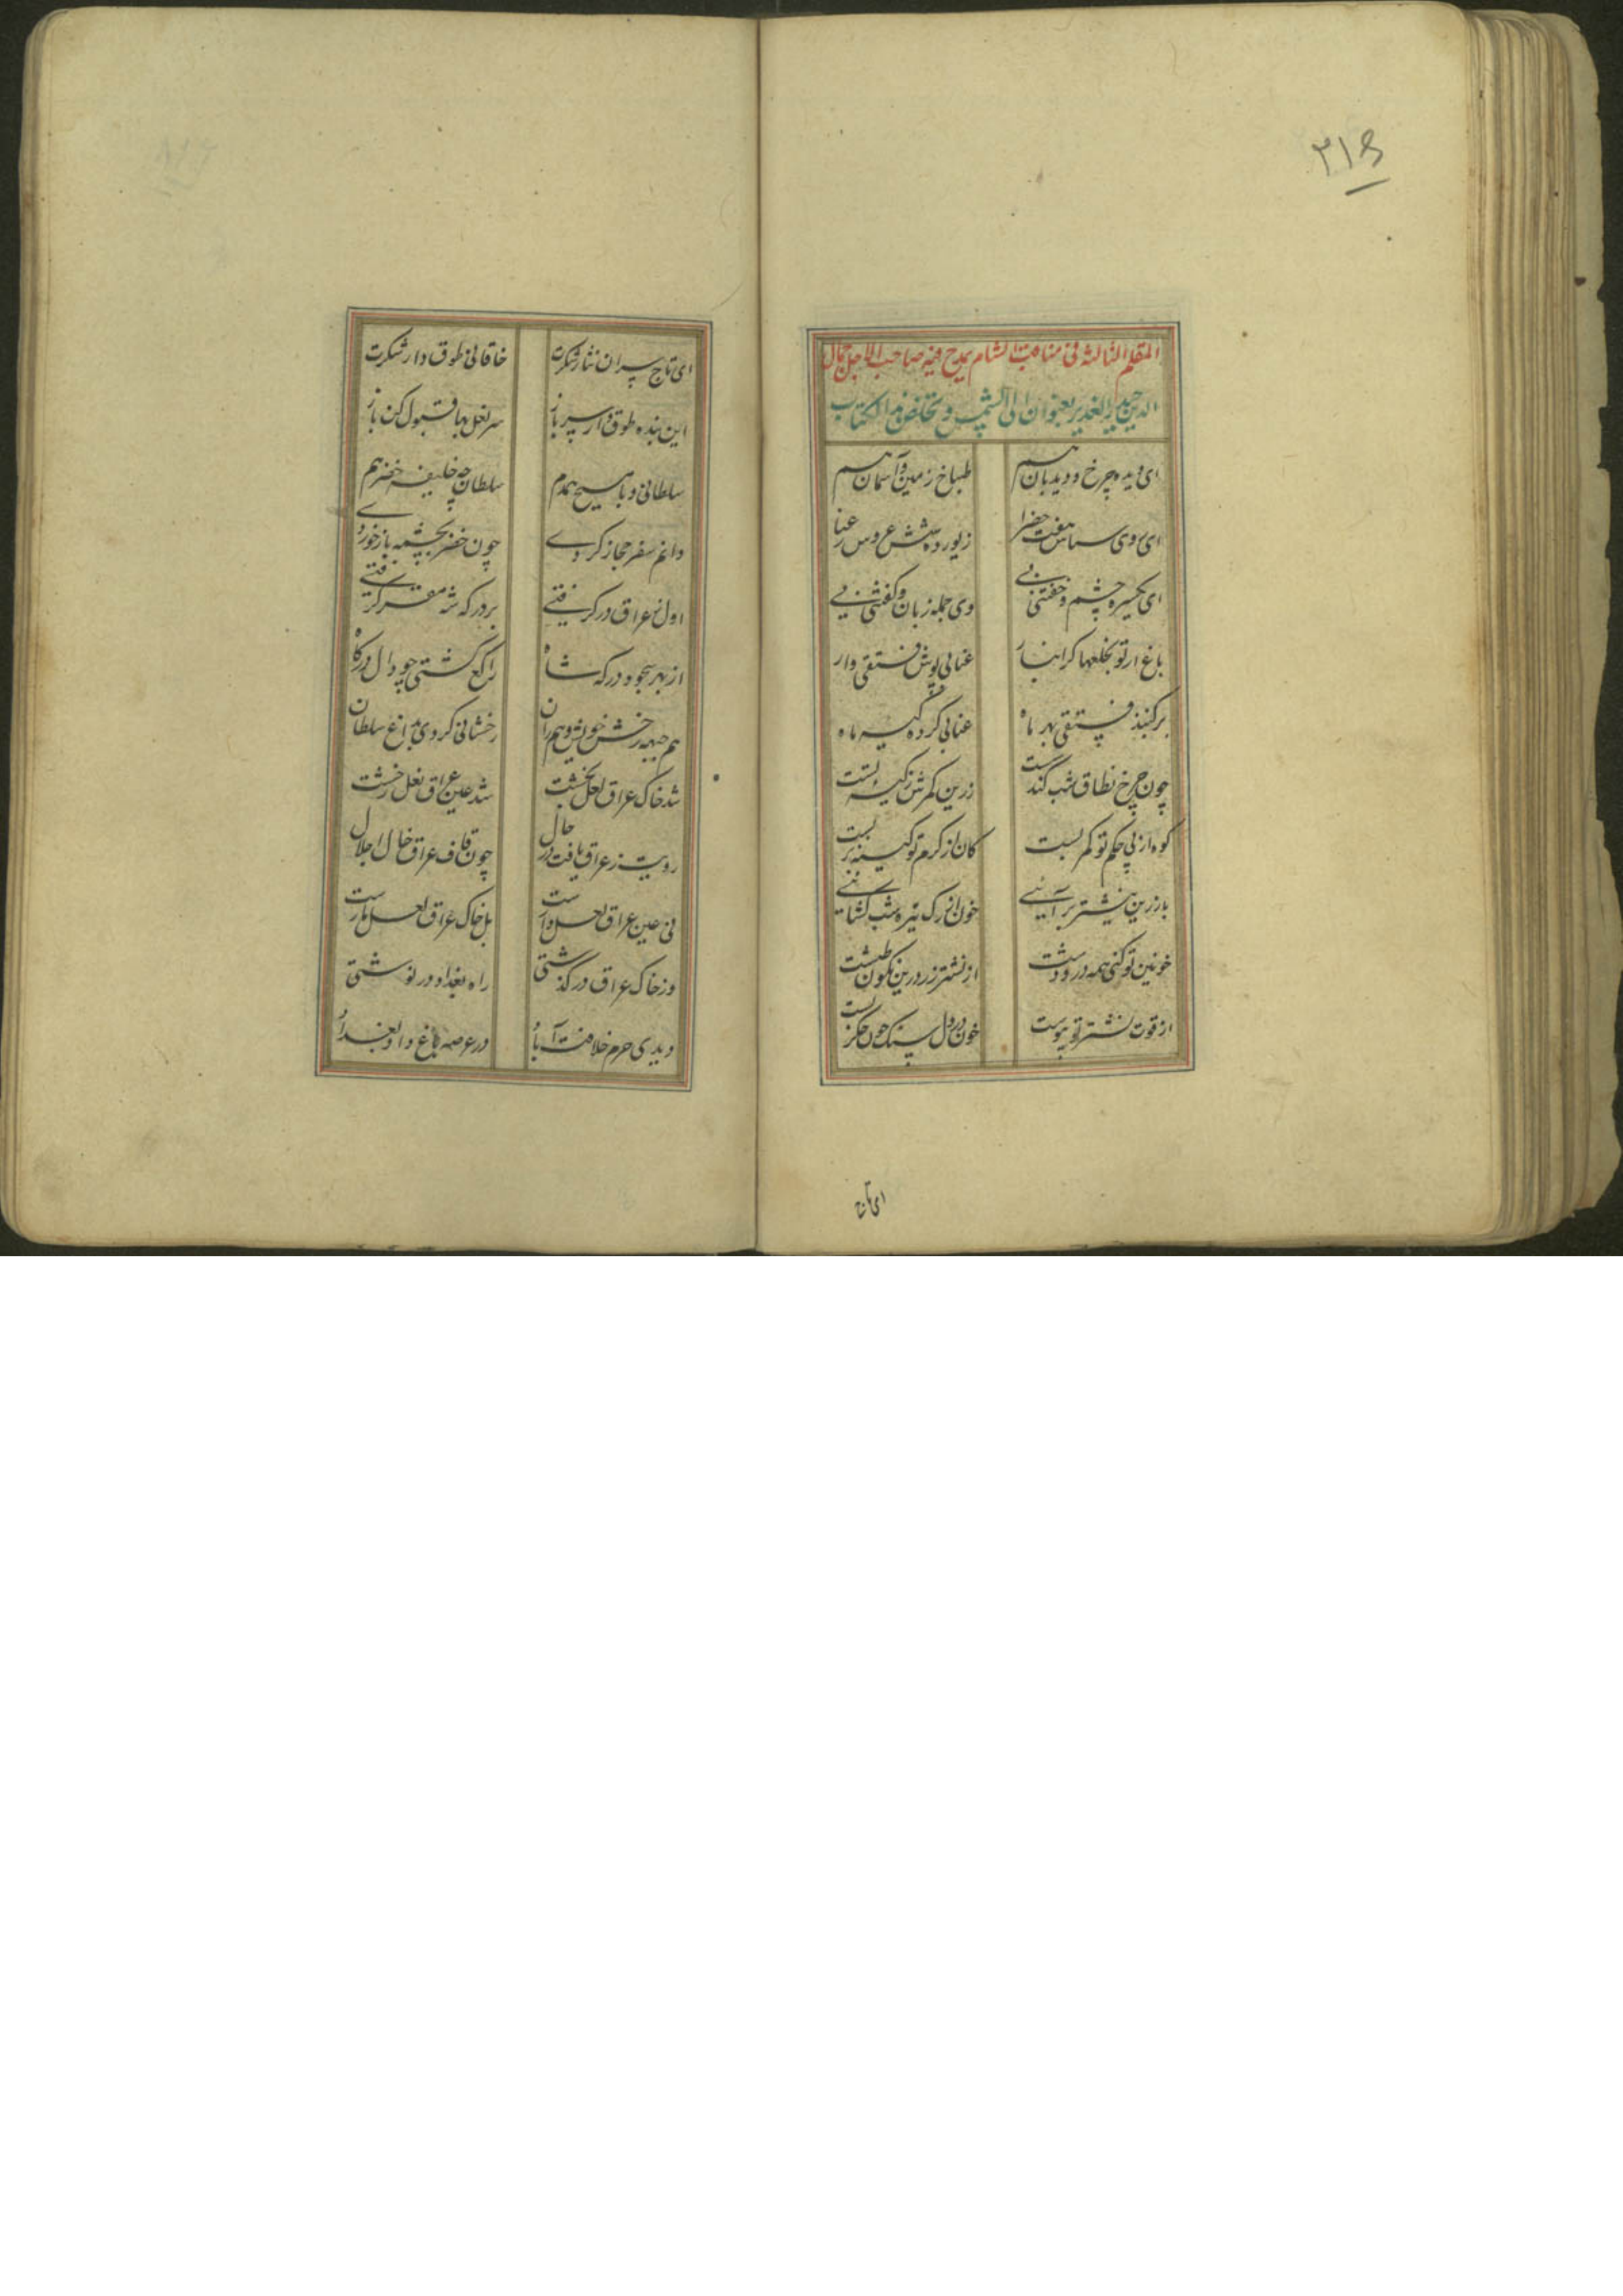 ۳۱۶
المقالة الثالثة فی مناقب الشام یمدح فیه صاحب الاجل جمال
الدین بعنوان الی الشمس و تخلص هذا الکتاب
ای دیده چرخ و دیدبان هم طباخ زمین و آسمان هم
ای روی سماس هفت خضرا زیور ده شش عروس رعنا
ای یکسره چشم و خفتنی نی وی جمله زبان و گفتنی نی
باغ از تو بخلعها کرانبار عنابی پوش فستقی دار
بر کنبذ فستقی بهر ماه عنابی کرده کیسه ماه
چون چرخ نطاق شب کندست زرین کمرش ز کیسه تست
کوه از پی حکم تو کمر بست کان از کرم تو کیسه بر بست
باز زرین نیشتر بر آئی خون از رک تیره شب کشائی
خونین تو کنی همه در و دشت از نشتر زر درین نکون طشت
از قوت نشتر تو پیوست خون در دل سنک چون جکر بست
ای تاج
ای تاج سپران نثار شکرت خاقانی طوق دار شکرت
این بنده طوق دار سر باز سر نعل بها قبول کن باز
سلطانی و با مسیح همدم سلطان چه خلیفه خضر هم
دانم سفر حجاز کردی چون خضر بچشمه باز خوردی
اول ز عراق در کرفتی بر درکه شه مقر کرفتی
از بهر سجود درکه شاه راکع کشتی چو دال درکاه
هم جبهه رخش خویش و هم ران رخشانی کردی بداغ سلطان
شد خاک عراق لعل بخشت شد عین عراق نعل رخشت
رویت ز عراق یافت در حال چون قاف عراق خال اجلال
نی عین عراق لعل وارست بل خاک عراق لعل بارست
وز خاک عراق در کذشتی راه بغداد در نوشتی
دیدی حرم خلافت آباد در عرصه باغ داد بغداد